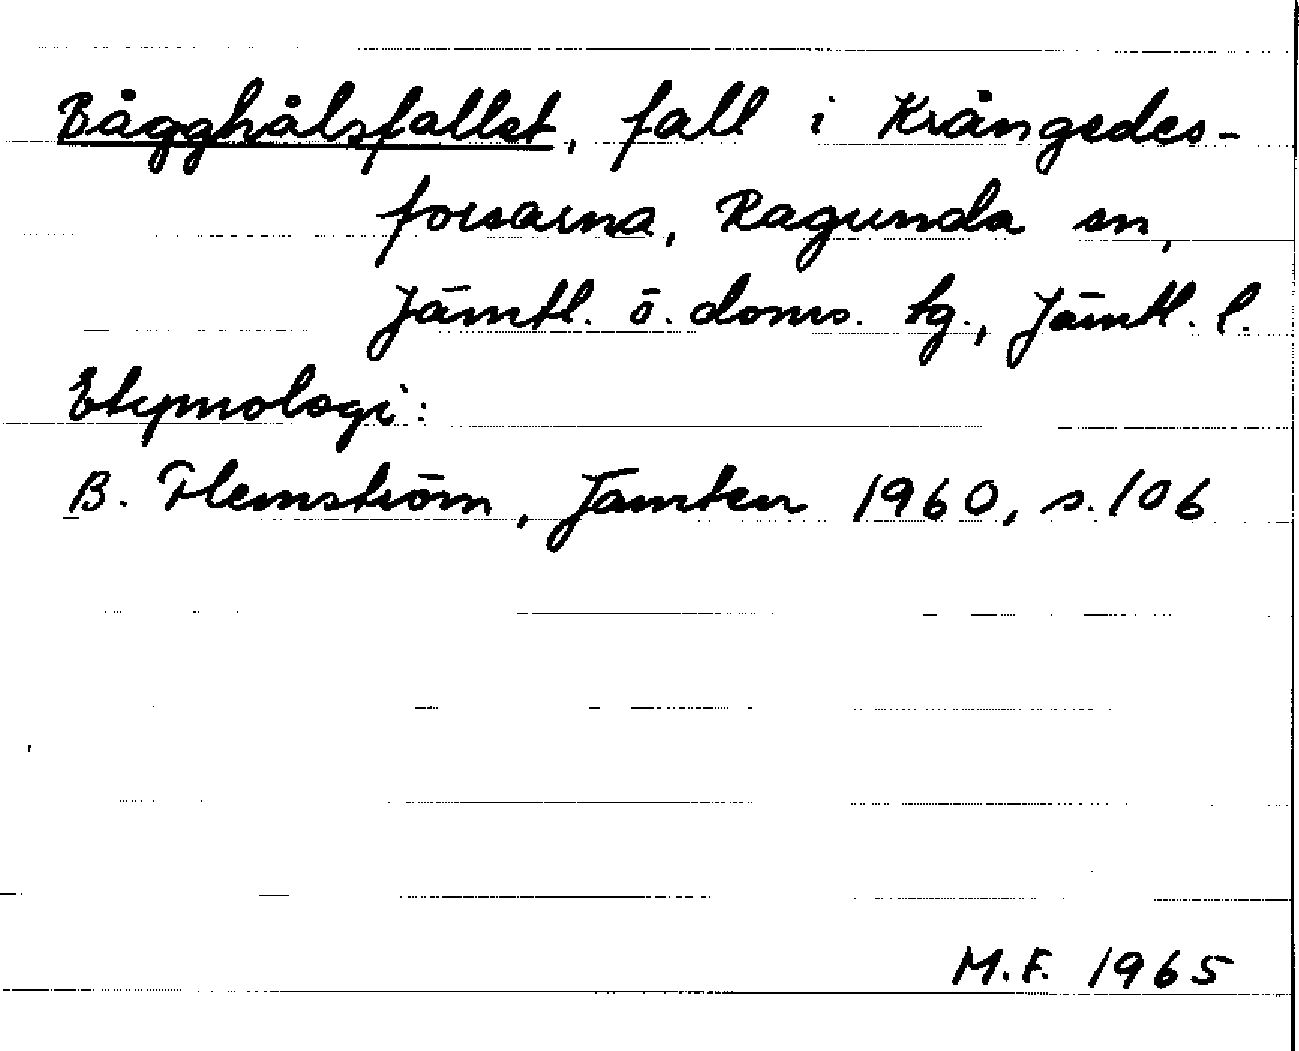 Bågghålsfallet, fall i Krångedes-
forsarna, Ragunda sn,
Jämtl. ö. doms. tg., Jämtl. l.
Etymologi:
B. Flemström, Jämten 1960, s. 106
M.F. 1965